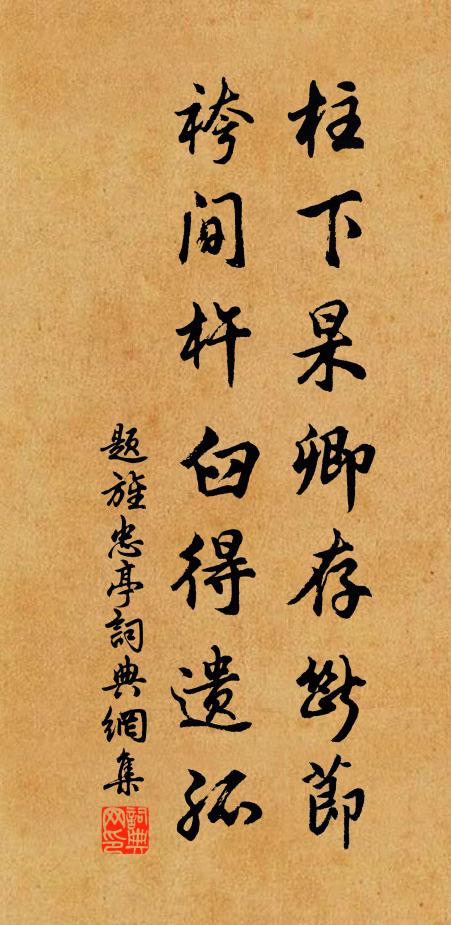 柱下杲卿存断節
袴间杵臼得遗孤
题旌忠亭詞典網集
詞典网印